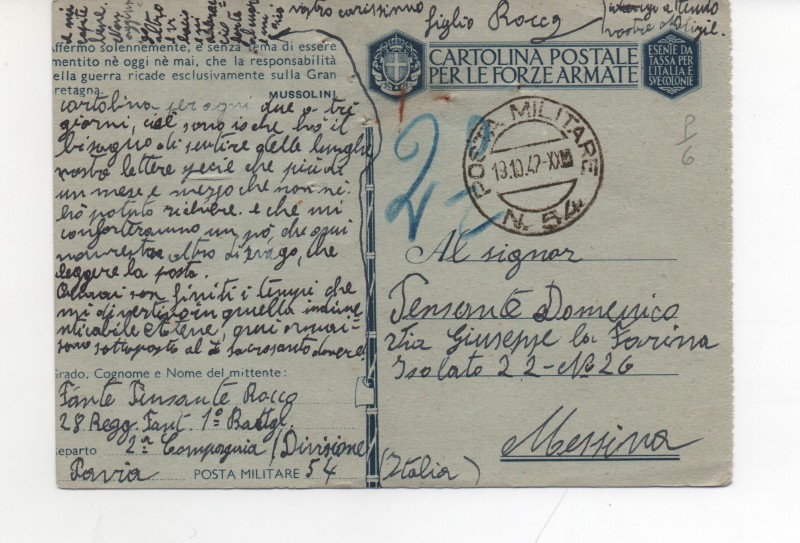 vostro carissimo
figlio Rocco
CARTOLINA POSTALE
PER LE FORZE ARMATE
ESENTE DA
TASSA PER
L'ITALIA E
SVE COLONIE
Affermo solennemente, e senza tema di essere
mentito nè oggi nè mai, che la responsabilità
ella guerra ricade esclusivamente sulla Gran
retagna.
MUSSOLINI
cartolina per ogni due o tre
giorni, cioè sono io che hò il
bisogno di sentire delle lunghe
vostre lettere specie che più di
un mese e mezzo che non ne
hò potuto ricevere. e che mi
conforteranno un pò, che ogni
altro di svago, che
leggere la posta.
Oramai son finiti i tempi che
mi divertivo in quella indime
nticabile Atene, quì ormai
sono sottoposto al sacrosanto dovere
POSTA MILITARE
19.10.42-XX
N. 54
22
P/6
Al signor
Pensante Domenico
Via Giuseppe la Farina
Isolato 22-N° 26
Messina
(Italia)
Grado, Cognome e Nome del mittente:
Fante Pensante Rocco
28 Regg. Fant. 1° Battgl.
eparto 2ª Compagnia (Divisione
Pavia POSTA MILITARE 54